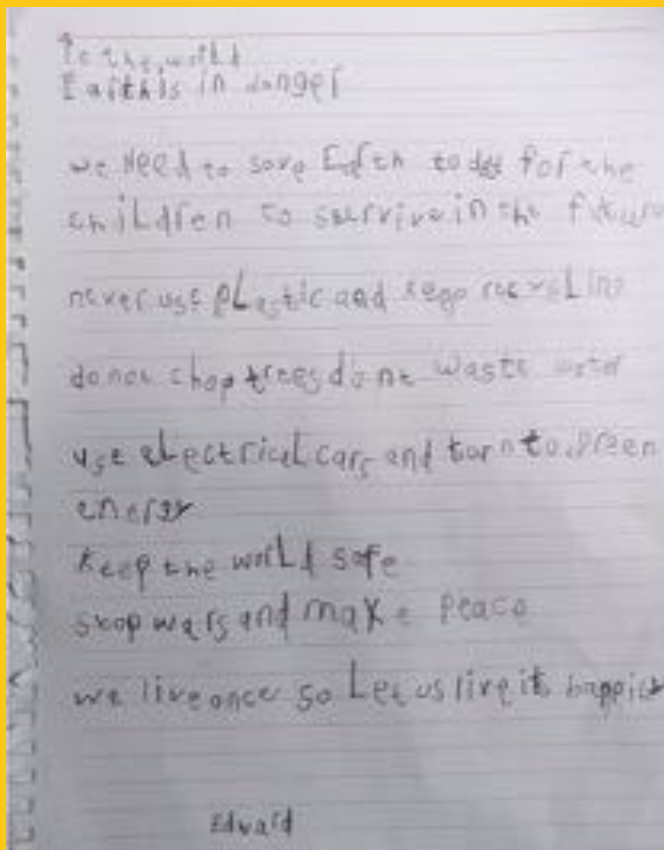 To the world
Earth is in danger
we Need to save Earth today for the
children to survive in the future
never use plastic and keep recycling
do not chop trees dont waste water
use electrical cars and turn to green
energy
Keep the world safe
stop wars and make Peace
we live once so Let us live it happier
Edward